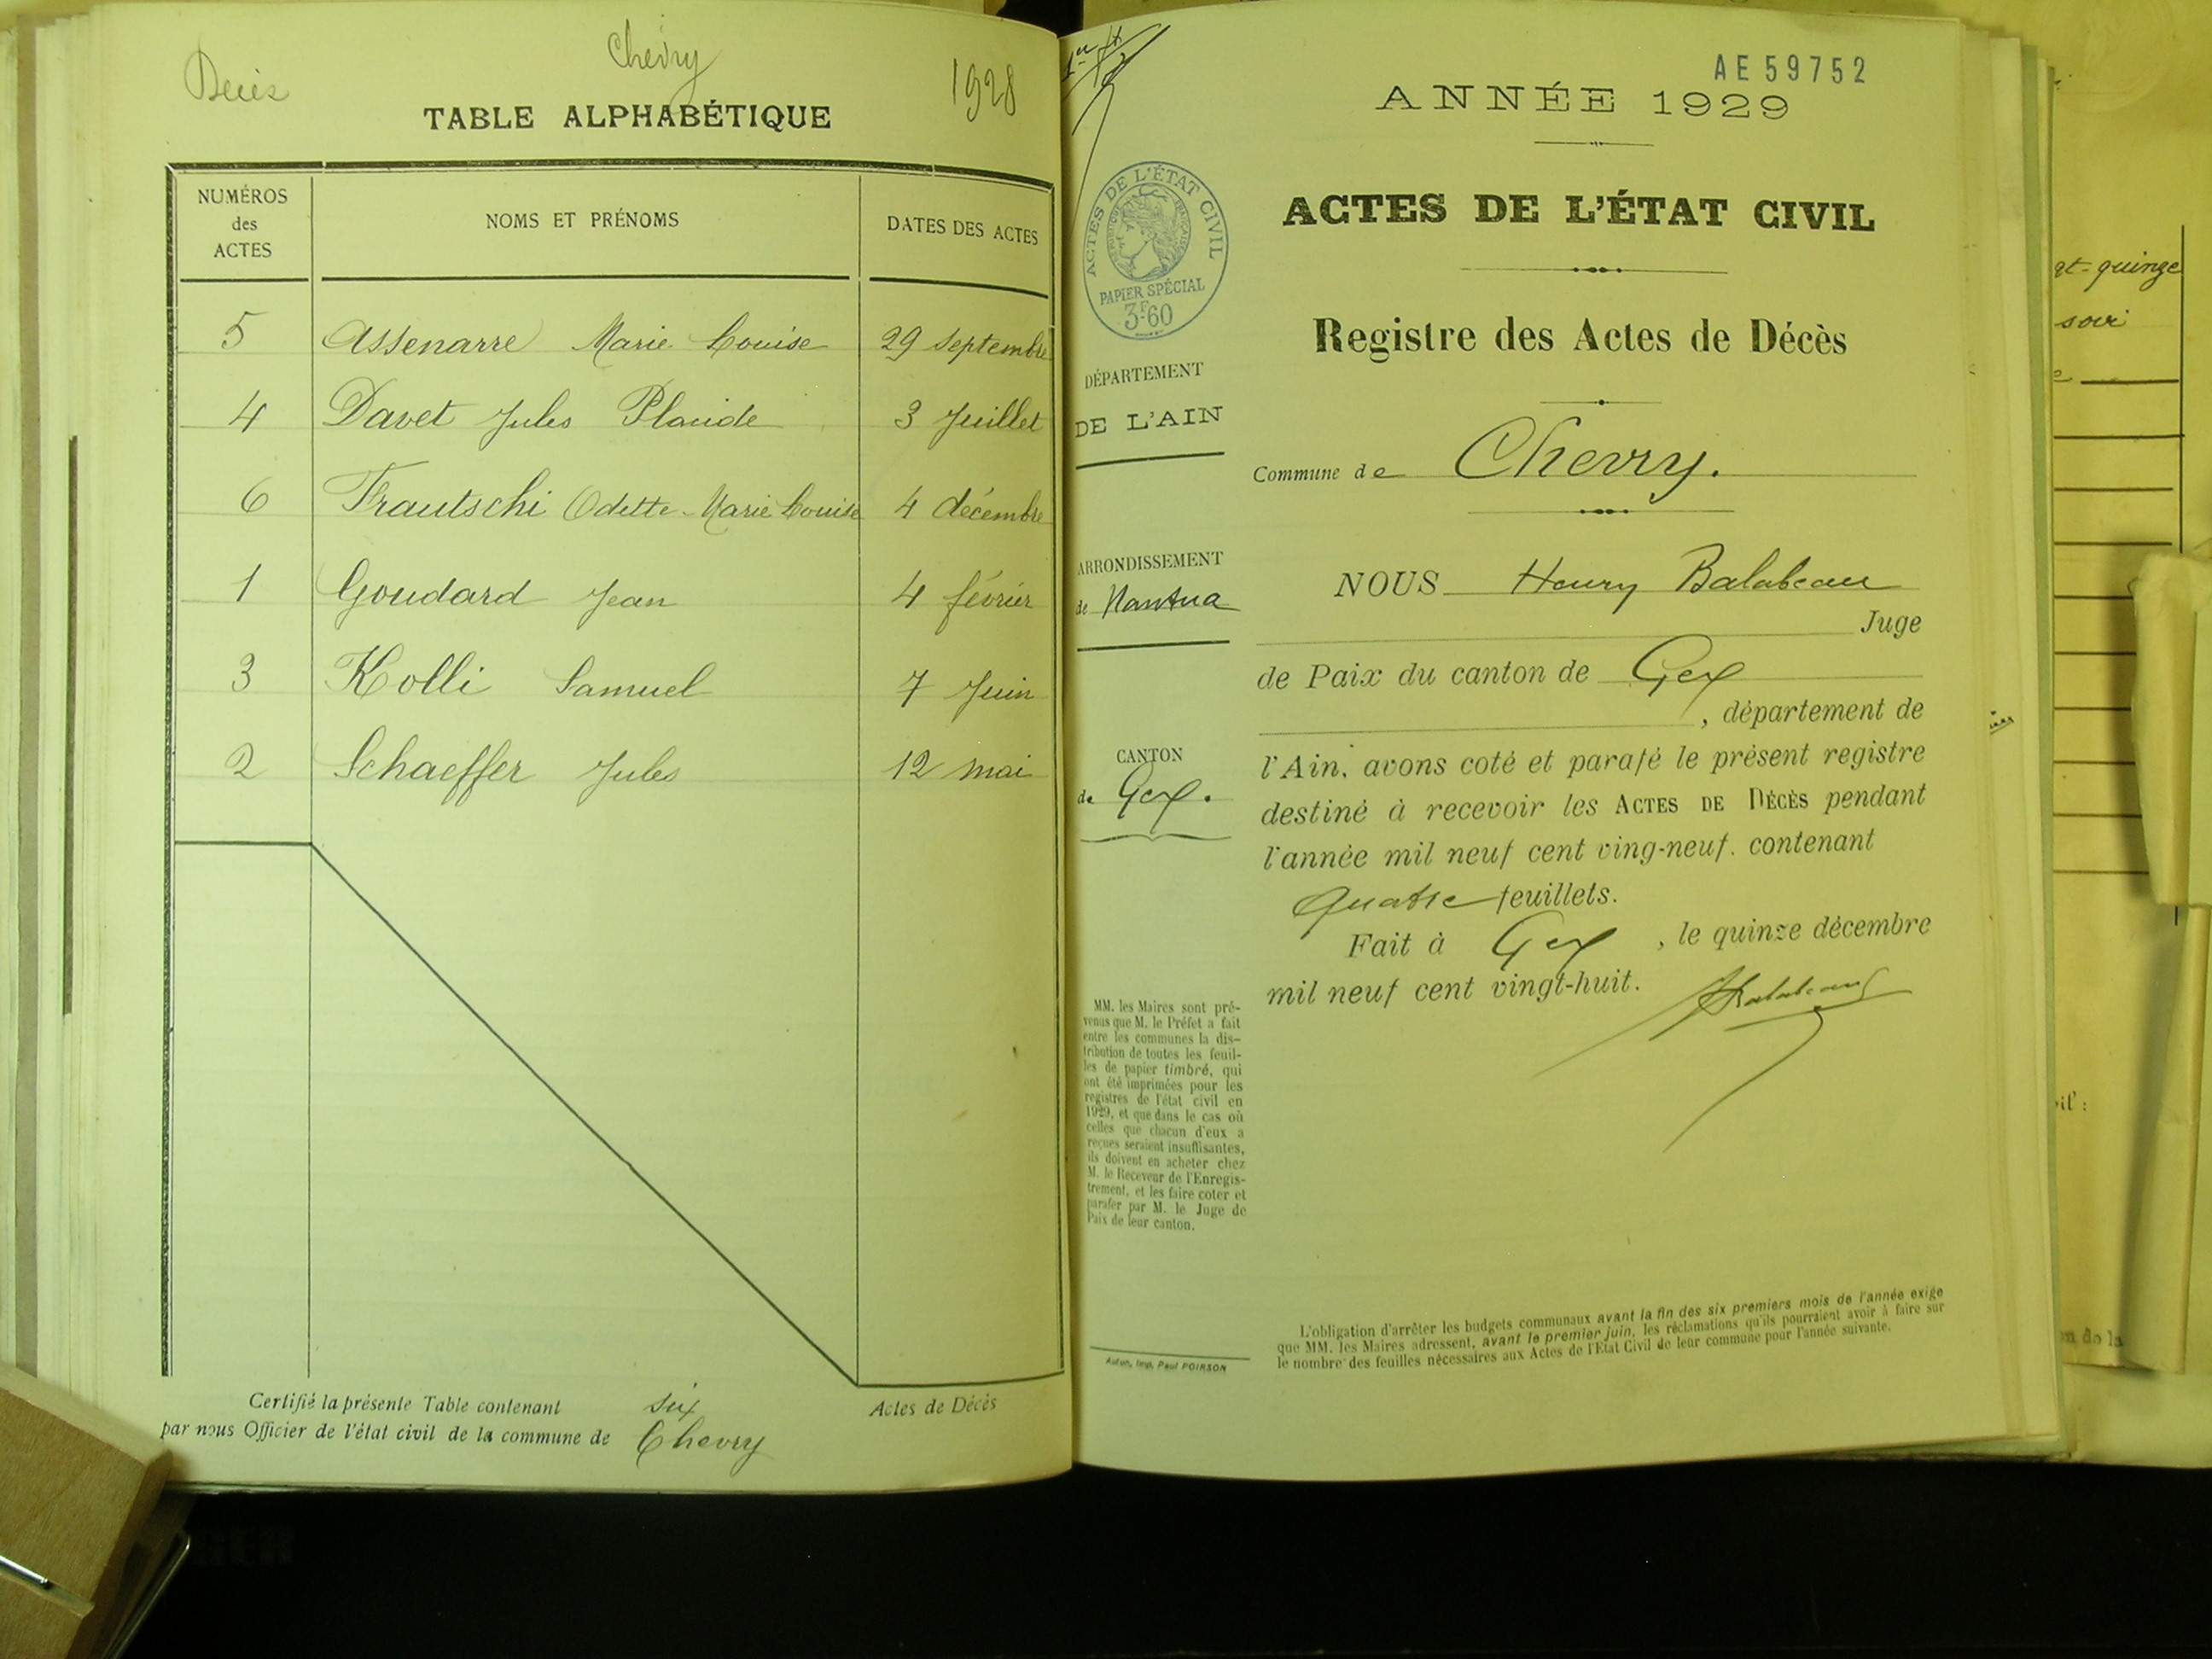 Décès Chevry 1928
TABLE ALPHABÉTIQUE
NUMÉROS des ACTES NOMS ET PRÉNOMS DATES DES ACTES
5 Assenarre Marie Louise 29 septembre
4 Davet Jules Placide 3 Juillet
6 Frautschi Odette-Marie Louise 4 décembre
1 Goudard Jean 4 février
3 Kolli Samuel 7 Juin
2 Schaeffer Jules 12 mai
Certifié la présente Table contenant six Actes de Décès
par nous Officier de l'état civil de la commune de Chevry
AE59752
ANNÉE 1929
ACTES DE L'ÉTAT CIVIL
PAPIER SPÉCIAL
3F60
ACTES DE L'ÉTAT CIVIL
Registre des Actes de Décès
DÉPARTEMENT
DE L'AIN
Commune de Chevry.
ARRONDISSEMENT
de Nantua
CANTON
de Gex.
NOUS Henry Balabeau
Juge
de Paix du canton de Gex
, département de
l'Ain, avons coté et parafé le présent registre
destiné à recevoir les ACTES DE DÉCÈS pendant
l'année mil neuf cent ving-neuf. contenant
Quatre feuillets.
Fait à Gex, le quinze décembre
mil neuf cent vingt-huit.
HBalabeau
MM. les Maires sont pré-
venus que M. le Préfet a fait
entre les communes la dis-
tribution de toutes les feuil-
les de papier timbré, qui
ont été imprimées pour les
registres de l'état civil en
1929, et que dans le cas où
celles que chacun d'eux a
reçues seraient insuffisantes,
ils doivent en acheter chez
M. le Receveur de l'Enregis-
trement, et les faire coter et
parafer par M. le Juge de
Paix de leur canton.
Autun, Imp. Paul POIRSON
L'obligation d'arrêter les budgets communaux avant la fin des six premiers mois de l'année exige
que MM. les Maires adressent, avant le premier juin, les réclamations qu'ils pourraient avoir à faire sur
le nombre des feuilles nécessaires aux Actes de l'État Civil de leur commune pour l'année suivante.
gt-quinze
soir